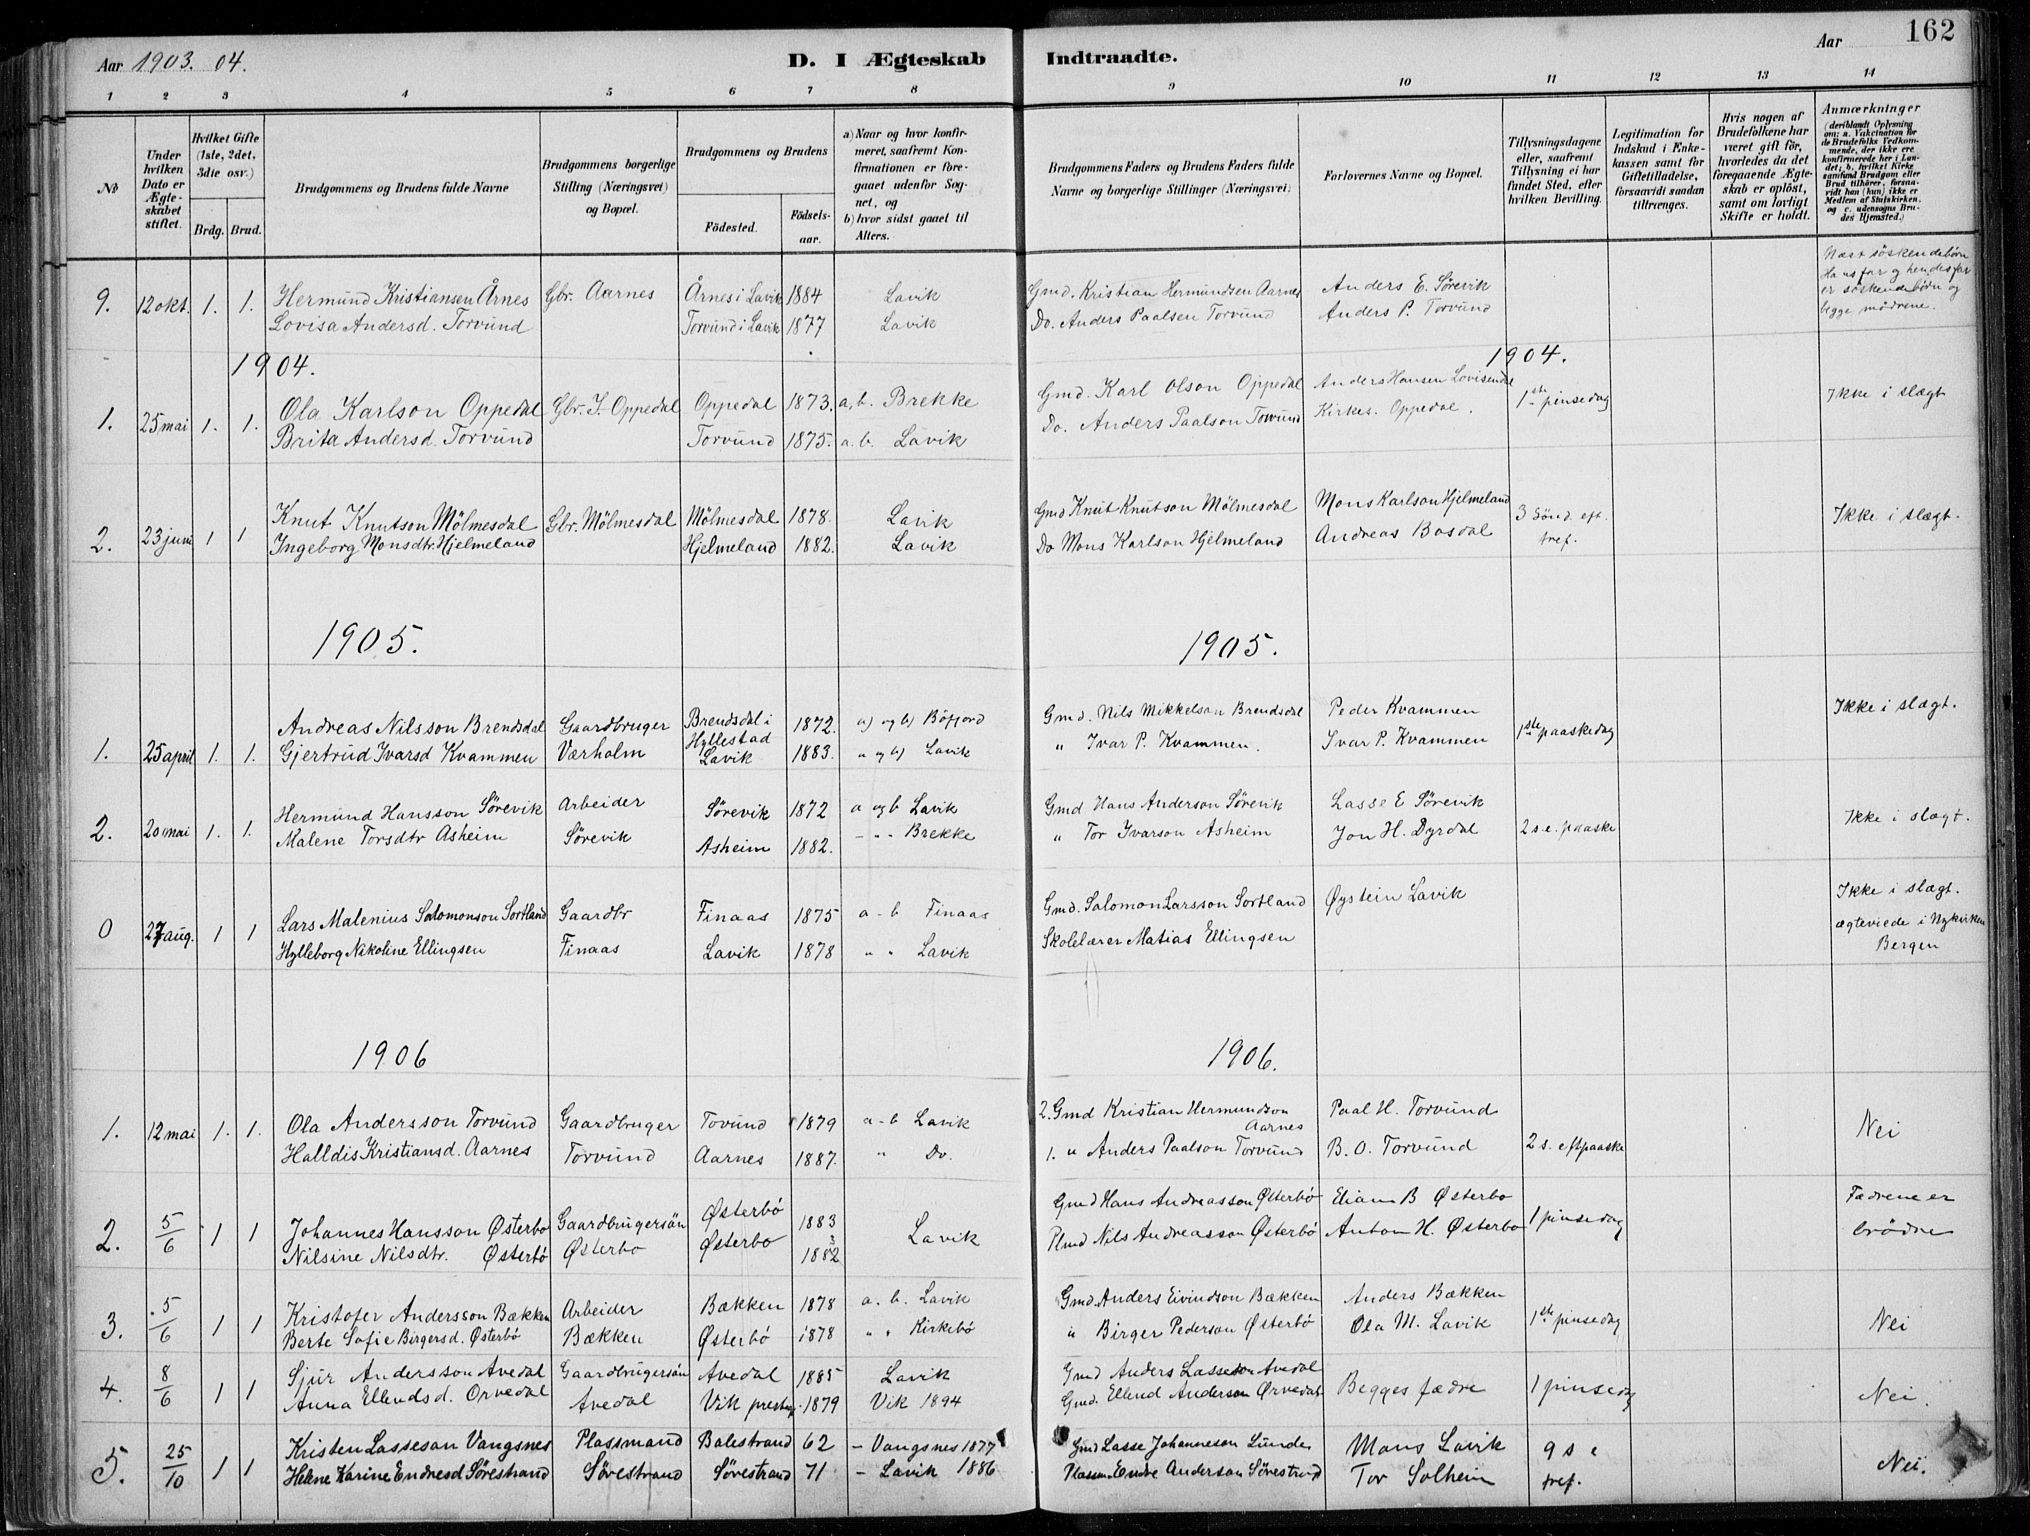 Aar 1903. 04.
D. I Ægteskab Indtraadte.
Aar
162
1 2 3 4 5 6 7 8 9 10 11 12 13 14
No
Under hvilken Dato er Ægteskabet stiftet.
Hvilket Gifte (1ste, 2det, 3die osv.)
Brdg. Brud.
Brudgommens og Brudens fulde Navne
Brudgommens borgerlige Stilling (Næringsvei) og Bopæl.
Brudgommens og Brudens
Födested. Födselsaar.
a) Naar og hvor konfirmeret, saafremt Konfirmationen er foregaaet udenfor Sognet, og
b) hvor sidst gaaet til Alters.
Brudgommens Faders og Brudens Faders fulde Navne og borgerlige Stillinger (Næringsvei)
Forlovernes Navne og Bopæl.
Tillysningsdagene eller, saafremt Tillysning ei har fundet Sted, efter hvilken Bevilling.
Legitimation for Indskud i Enkekassen samt for Giftetilladelse, forsaavidt saadan tiltrænges.
Hvis nogen af Brudefolkene har været gift för, hvorledes da det foregaaende Ægteskab er oplöst, samt om lovligt Skifte er holdt.
Anmærkninger (deriblandt Oplysning om: a. Vakcination for de Brudefolks Vedkommende, der ikke ere konfirmerede her i Landet; b. hvilket Kirkesamfund Brudgom eller Brud tilhörer, forsaavidt han (hun) ikke er Medlem af Statskirken, og c. udensogns Brudes Hjemsted.)
9. 12 okt. 1. 1. Hermund Kristiansen Årnes Gbr. Aarnes Årnes i Lavik 1884 Lavik Gmd. Kristian Hermundsen Aarnes Anders E. Sørevik
Lovisa Andersd. Torvund Torvund i Lavik 1877 Lavik Do. Anders Paalsen Torvund Anders P. Torvund
Næst søskendebørn
Hans far og hendes far
er søskendebørn og
begge mødrene.
1904. 1904.
1. 25 mai 1. 1. Ola Karlson Oppedal Gbr. I. Oppedal Oppedal 1873. a, b. Brekke Gmd. Karl Olson Oppedal Anders Hansen Lovisendal 1ste pinsedag Ikke i slægt
Brita Andersd. Torvund Torvund 1875. a. b. Lavik Do. Anders Paalson Torvund Kirkes. Oppedal.
2. 23 juni 1 1 Knut Knutson Mölmesdal Gbr. Mölmesdal Mölmesdal 1878. Lavik Gmd Knut Knutson Mölmesdal Mons Karlson Hjelmeland 3 Sönd. eft. tref. Ikke i slægt.
Ingeborg Monsdtr. Hjelmeland Hjelmeland 1882. Lavik Do Mons Karlson Hjelmeland Andreas Bosdal
1905. 1905.
1. 25 april 1. 1. Andreas Nilsson Brendsdal Gaardbruger Brendsdal i Hyllestad 1872. a) og b) Böfjord Gmd. Nils Mikkelson Brendsdal Peder Kvammen 1ste paaskedag Ikke i slægt.
Gjertrud Ivarsd Kvammen Værholm Lavik 1883. " og b) Lavik " Ivar P. Kvammen. Ivar P. Kvammen
2. 20 mai 1. 1. Hermund Hansson Sörevik Arbeider Sörevik 1872 a og b Lavik Gmd Hans Anderson Sörevik Lasse E Sörevik 2 s. e. paaske Ikke i slægt.
Malene Torsdtr Asheim Sörevik Asheim 1882. - " - Brekke " Tor Ivarson Asheim Jon H. Dyrdal
0 27 aug. 1 1 Lars Malenius Salomonson Sortland Gaardbr Finaas 1875 a - b Finaas Gmd. Salomon Larsson Sortland Øystein Lavik
Hylleborg Nikoline Ellingsen Finaas Lavik 1878 " " Lavik Skolelærer Matias Ellingsen
Ikke i slægt.
ægteviede i Nykirken
Bergen
1906 1906.
1. 12 mai 1. 1. Ola Andersson Torvund Gaardbruger Tovund 1879 a - b Lavik 2. Gmd Kristian Hermundson Aarnes Paal H. Torvund
Halldis Kristiansd. Aarnes Torvund Aarnes 1887. " Do. 1. " Anders Paalson Torvund B. O. Torvund 2 s. eft paaske Nei
2. 5/6 1 1 Johannes Hansson Østerbø Gaardbrugersön Østerbö 1883 Lavik Gmd Hans Andreasson Østerbö Elian B Østerbo 1 pinsedag Fædrene er
Nilsine Nilsdtr. Østerbö Østerbo Østerbo 1882 Plmd Nils Andreasson Østerbö Anton H. Østerbo brødre
3. 5/6 1 1 Kristofer Andersson Bækken Arbeider Bækken 1878 a. b. Lavik Gmd. Anders Eivindson Bækken Anders Bækken 1ste pinsedag Nei
Berte Sofie Birgersd. Østerbö Bækken Østerbö 1878 " " Kirkebö " Birger Pederson Østerbö Ola M. Lavik
4. 8/6 1 1 Sjur Andersson Avedal Gaardbrugersön Avedal 1885 Lavik Gmd Anders Lasseson Avedal Begges fædre 1 pinsedag Nei.
Anna Ellendsd. Orvedal Avedal Vik prestegj. 1879 Vik 1894 Gmd. Ellend Anderson Ørvedal
5. 25/10 1 1 Kristen Lasseson Vangsnes Plassmand Balestrand 62 - Vangsnes 1877 Gmd Lasse Johanneson Lunde Mons Lavik 9 s e tref. Nei.
Helene Karine Endresd Sörestrand Sörestrand Sörestrand 71 - Lavik 1886 Plassm. Endre Anderson Sörestrand Tor Solheim